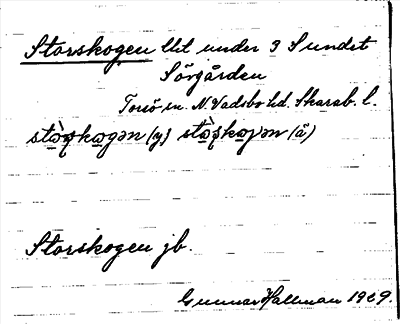 Storskogen lht under 3 Sundet
Sörgården
Torsö sn. N. Vadsbo hd. Skarab. l.
stɷ̀ꞩkɷgən (y) stɷ̀ꞩkɷɡən (å)
Storskogen jb.
Gunnar Hallman 1969.